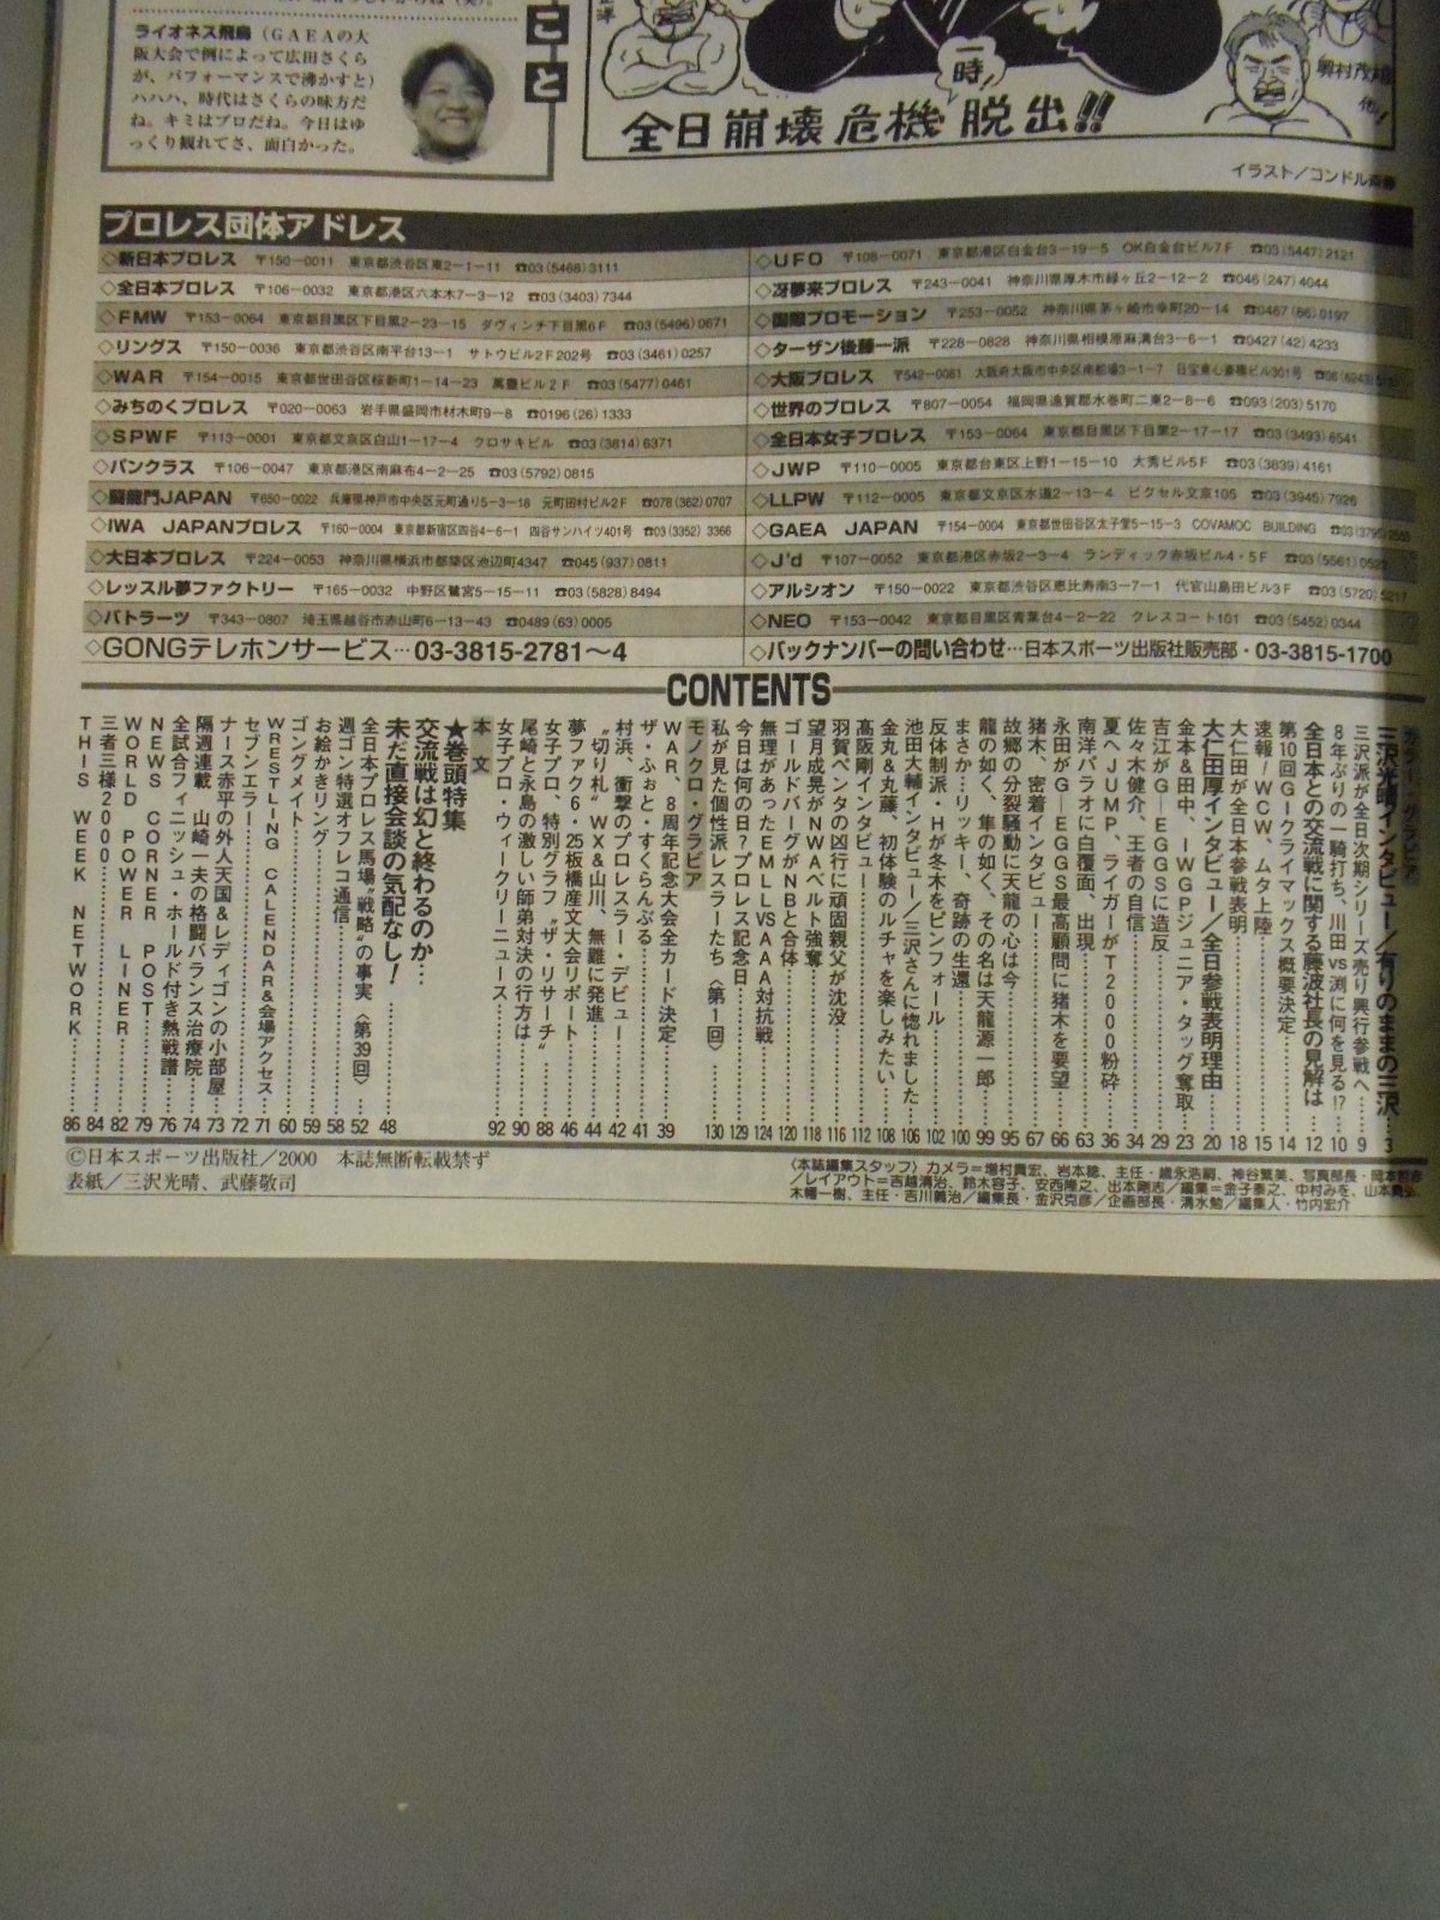 ライオネス飛鳥（GAEAの大
阪大会で例によって広田さくら
が、パフォーマンスで沸かすと）
ハハハ、時代はさくらの味方だ
ね。キミはプロだね。今日はゆ
っくり観れてさ、面白かった。
こと
一時
全日崩壊危機脱出!!
イラスト／コンドル斎藤
プロレス団体アドレス
◇新日本プロレス 〒150-0011 東京都渋谷区東2-1-11 ☎03(5468)3111
◇全日本プロレス 〒106-0032 東京都港区六本木7-3-12 ☎03(3403)7344
◇FMW 〒153-0064 東京都目黒区下目黒2-23-15 ダヴィンチ下目黒6F ☎03(5496)0671
◇リングス 〒150-0036 東京都渋谷区南平台13-1 サトウビル2F202号 ☎03(3461)0257
◇WAR 〒154-0015 東京都世田谷区桜新町1-14-23 萬豊ビル2F ☎03(5477)0461
◇みちのくプロレス 〒020-0063 岩手県盛岡市材木町9-8 ☎0196(26)1333
◇SPWF 〒113-0001 東京都文京区白山1-17-4 クロサキビル ☎03(3814)6371
◇パンクラス 〒106-0047 東京都港区南麻布4-2-25 ☎03(5792)0815
◇闘龍門JAPAN 〒650-0022 兵庫県神戸市中央区元町通り5-3-18 元町田村ビル2F ☎078(362)0707
◇IWA JAPANプロレス 〒160-0004 東京都新宿区四谷4-6-1 四谷サンハイツ401号 ☎03(3352)3366
◇大日本プロレス 〒224-0053 神奈川県横浜市都築区池辺町4347 ☎045(937)0811
◇レッスル夢ファクトリー 〒165-0032 中野区鷺宮5-15-11 ☎03(5828)8494
◇バトラーツ 〒343-0807 埼玉県越谷市赤山町6-13-43 ☎0489(63)0005
◇GONGテレホンサービス…03-3815-2781〜4
◇UFO 〒108-0071 東京都港区白金台3-19-5 OK白金台ビル7F ☎03(5447)2121
◇冴夢来プロレス 〒243-0041 神奈川県厚木市緑ヶ丘2-12-2 ☎046(247)4044
◇国際プロモーション 〒253-0052 神奈川県茅ヶ崎市幸町20-14 ☎0467(86)0197
◇ターザン後藤一派 〒228-0828 神奈川県相模原麻溝台3-6-1 ☎0427(42)4233
◇大阪プロレス 〒542-0081 大阪府大阪市中央区南船場3-1-7 日宝東心斎橋ビル301号
◇世界のプロレス 〒807-0054 福岡県遠賀郡水巻町二東2-8-6 ☎093(203)5170
◇全日本女子プロレス 〒153-0064 東京都目黒区下目黒2-17-17 ☎03(3493)6541
◇JWP 〒110-0005 東京都台東区上野1-15-10 大秀ビル5F ☎03(3839)4161
◇LLPW 〒112-0005 東京都文京区水道2-13-4 ピクセル文京105 ☎03(3945)7926
◇GAEA JAPAN 〒154-0004 東京都世田谷区太子堂5-15-3 COVAMOC BUILDING
◇J'd 〒107-0052 東京都港区赤坂2-3-4 ランディック赤坂ビル4・5F
◇アルシオン 〒150-0022 東京都渋谷区恵比寿南3-7-1 代官山島田ビル3F ☎03(5720)5217
◇NEO 〒153-0042 東京都目黒区青葉台4-2-22 クレスコート101 ☎03(5452)0344
◇バックナンバーの問い合わせ…日本スポーツ出版社販売部・03-3815-1700
CONTENTS
カラー・グラビア
三沢光晴インタビュー／有りのままの三沢…3
三沢派が全日次期シリーズ売り興行参戦へ……9
8年ぶりの一騎打ち、川田vs渕に何を見る!?…10
全日本との交流戦に関する藤波社長の見解は…12
第10回G-クライマックス概要決定……14
速報！WCW、ムタ上陸……15
大仁田が全日本参戦表明……18
大仁田厚インタビュー／全日参戦表明理由……20
金本&田中、IWGPジュニア・タッグ奪取…23
吉江がG-EGGSに造反……29
佐々木健介、王者の自信……34
夏へJUMP、ライガーがT2000粉砕…36
南洋パラオに白覆面、出現……63
永田がG-EGGS最高顧問に猪木を要望……66
猪木、密着インタビュー……67
故郷の分裂騒動に天龍の心は今……95
龍の如く、隼の如く、その名は天龍源一郎…99
まさか…リッキー、奇跡の生還……100
反体制派・Hが冬木をピンフォール……102
池田大輔インタビュー／三沢さんに惚れました…106
金丸&丸藤、初体験のルチャを楽しみたい…108
高阪剛インタビュー……112
羽賀ペンタの凶行に頑固親父が沈没……116
望月成晃がNWAベルト強奪……118
ゴールドバーグがNBと合体……120
無理があったEMLLvsAAA対抗戦……124
今日は何の日？プロレス記念日……129
私が見た個性派レスラーたち〈第1回〉……130
モノクロ・グラビア
WAR、8周年記念大会全カード決定……39
ザ・ふぉと・すくらんぶる……41
村浜、衝撃のプロレスラー・デビュー……42
〝切り札〟WX&山川、無難に発進……44
夢ファク6・25板橋産文大会リポート……46
女子プロ、特別グラフ〝ザ・リサーチ〟……88
尾崎と永島の激しい師弟対決の行方は……90
女子プロ・ウィークリーニュース……92
本文
★巻頭特集
交流戦は幻と終わるのか…
未だ直接会談の気配なし！……48
全日本プロレス馬場〝戦略〟の事実〈第39回〉…52
週ゴン特選オフレコ通信……58
お絵かきリング……59
ゴングメイト……60
WRESTLING CALENDAR&会場アクセス…71
セブンエラー……72
ナース赤平の外人天国&レディゴンの小部屋…73
隔週連載 山崎一夫の格闘バランス治療院…74
全試合フィニッシュ・ホールド付き熱戦譜…76
NEWS CORNER POST……79
WORLD POWER LINER……82
三者三様2000……84
THIS WEEK NETWORK……86
©日本スポーツ出版社／2000 本誌無断転載禁ず
表紙／三沢光晴、武藤敬司
〈本誌編集スタッフ〉カメラ＝増村貴宏、岩本稔、主任・歳永浩嗣、神谷繁美、写真部長・岡本哲志
／レイアウト＝吉越清治、鈴木容子、安西隆之、出本剛志／編集＝金子泰之、中村みを、山本貴弘、
木幡一樹、主任・吉川義治／編集長・金沢克彦／企画部長・清水勉／編集人・竹内宏介